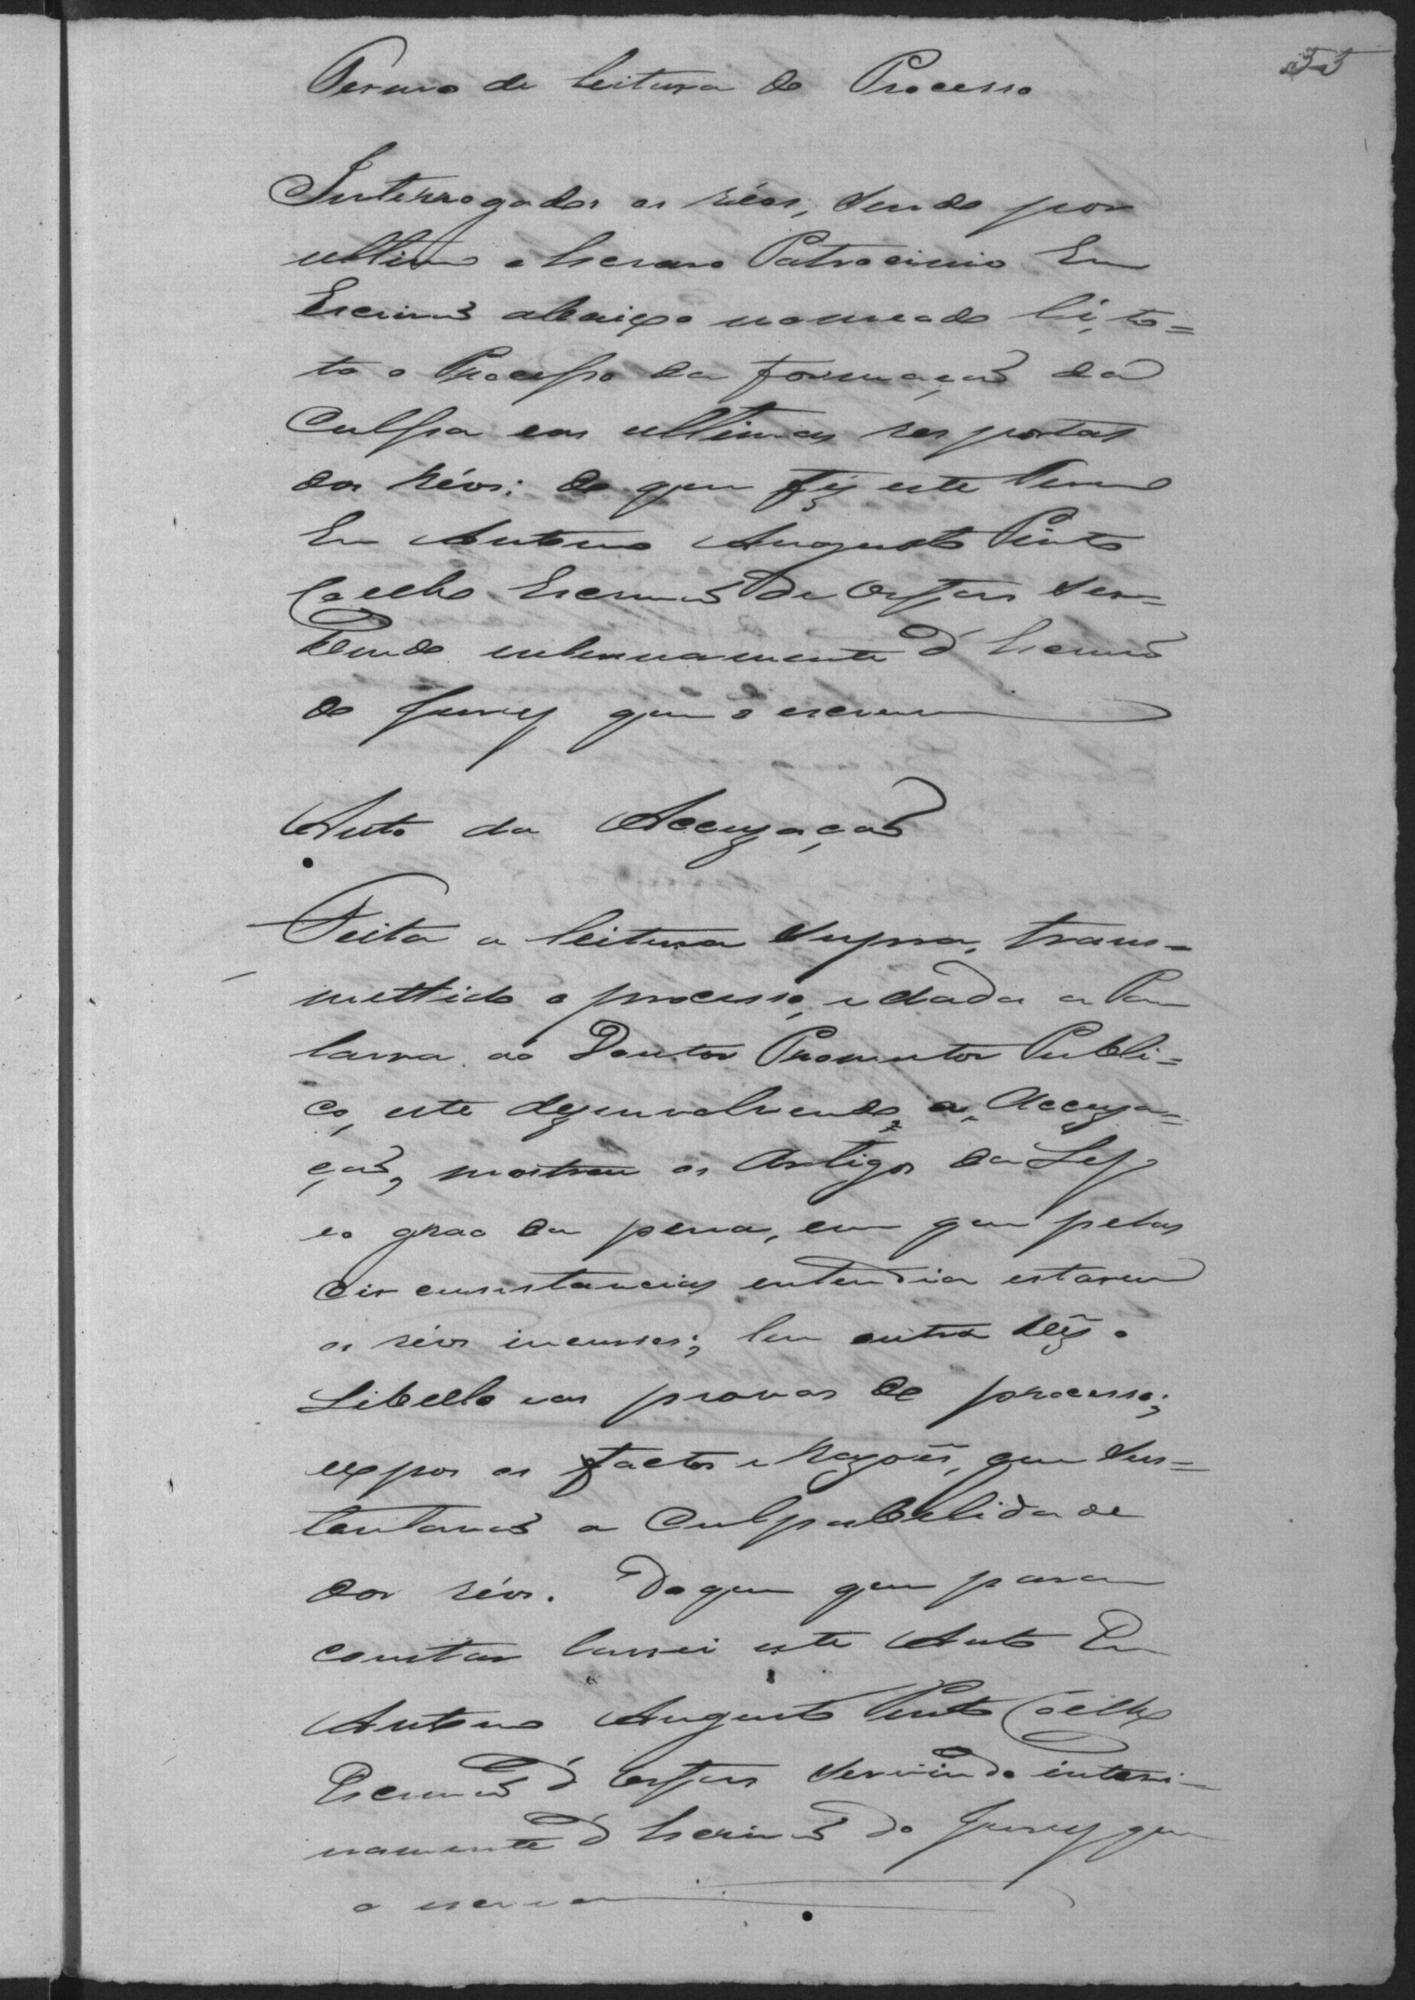 55
Termo de leitura do Processo
Interrogados os réos, sendo por
ultimo o escravo Patrocinio Eu
Escrivaõ abaixo nomeado li, to=
to o Processo da formaçaõ da
Culpa e as ultimas respostas
dos Réos; do que fiz este Termo
Eu Antonio Augusto Pinto
Coelho Escrivaõ de Orfaos ser-
vindo interinamente d'Escrivaõ
do Jury que o escrevi
Auto da Accuzaçaõ
Feita a leitura supra, trans=
mettido o processo, e dada a Pa
lavra ao Doutor Promutor Publi=
co, este dezenvolvendo a Accuza=
çaõ, mostrou os Artigos da Ley
e o grao da pena, em que pelas
circunstancias entendia estarem
os réos incursos; leu outra vez o
Libello e as provas do processo;
expos os factos e Razoẽs, que sus=
tentavaõ a Culpabelidade
dos réos. Do que que para
constar lavrei este Auto Eu
Antonio Augusto Pinto Coelho
Escrivaõ d'Orfaos servindo interi-
namente d'Escrivaõ do Jury que
o escrevi